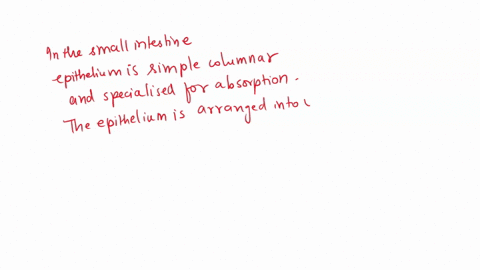 In the small intestine
epithelium is simple columnar
and specialised for absorption.
The epithelium is arranged into